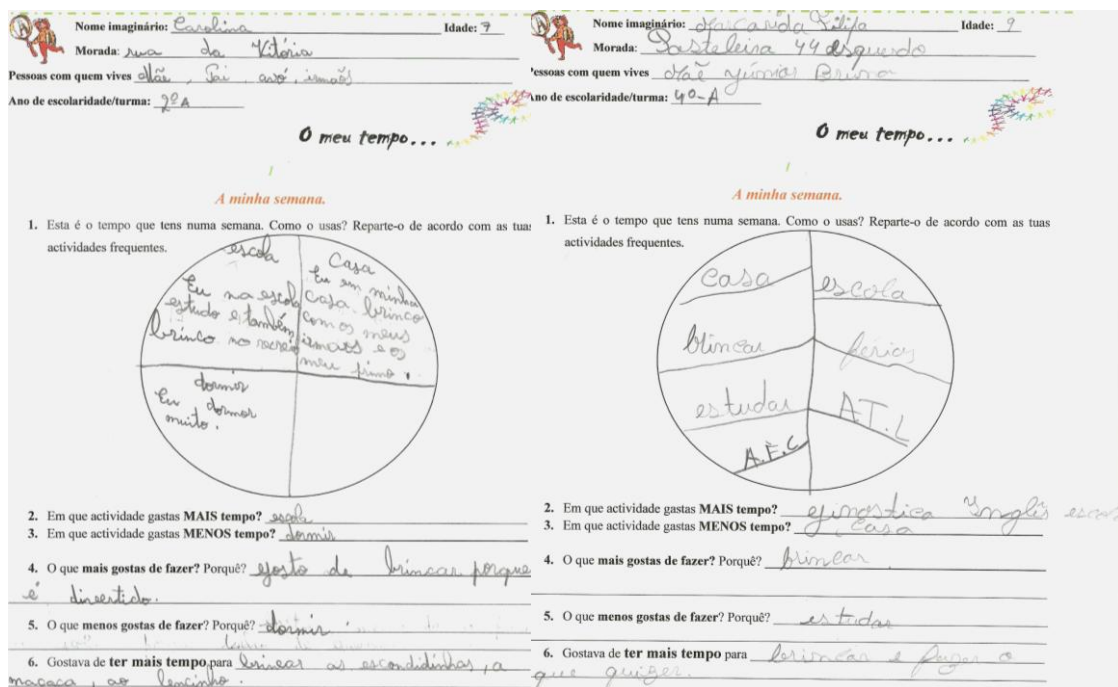 Nome imaginário: Carolina Idade: 7
Morada: rua da Vitória
Pessoas com quem vives Mãe, Pai, avó, irmaõs
Ano de escolaridade/turma: 2º A
O meu tempo...
1
A minha semana.
1. Esta é o tempo que tens numa semana. Como o usas? Reparte-o de acordo com as tuas
actividades frequentes.
escola
Eu na escola
estudo e também
brinco no recreio
Casa
Eu em minha
casa brinco
com os meus
irmaõs e os
meu primo.
dormir
Eu dormor
muito.
2. Em que actividade gastas MAIS tempo? escola
3. Em que actividade gastas MENOS tempo? dormir
4. O que mais gostas de fazer? Porquê? gosto de brincar porque
é diveertido.
5. O que menos gostas de fazer? Porquê? dormir
6. Gostava de ter mais tempo para brincar as escondidinhas, a
macaca, ao lencinho.
Nome imaginário: Marcarida Filifa Idade: 9
Morada: Pasteleira 44 esquerdo
Pessoas com quem vives Mãe yúnior Bruna
Ano de escolaridade/turma: 4º-A
O meu tempo...
1
A minha semana.
1. Esta é o tempo que tens numa semana. Como o usas? Reparte-o de acordo com as tuas
actividades frequentes.
casa
escola
brincar
férias
estudar
A.T.L
A.E.C
2. Em que actividade gastas MAIS tempo? ginostica Ynglês escola
3. Em que actividade gastas MENOS tempo? Casa
4. O que mais gostas de fazer? Porquê? brincar
5. O que menos gostas de fazer? Porquê? estudar
6. Gostava de ter mais tempo para brimcar e fazer o
que quizer.